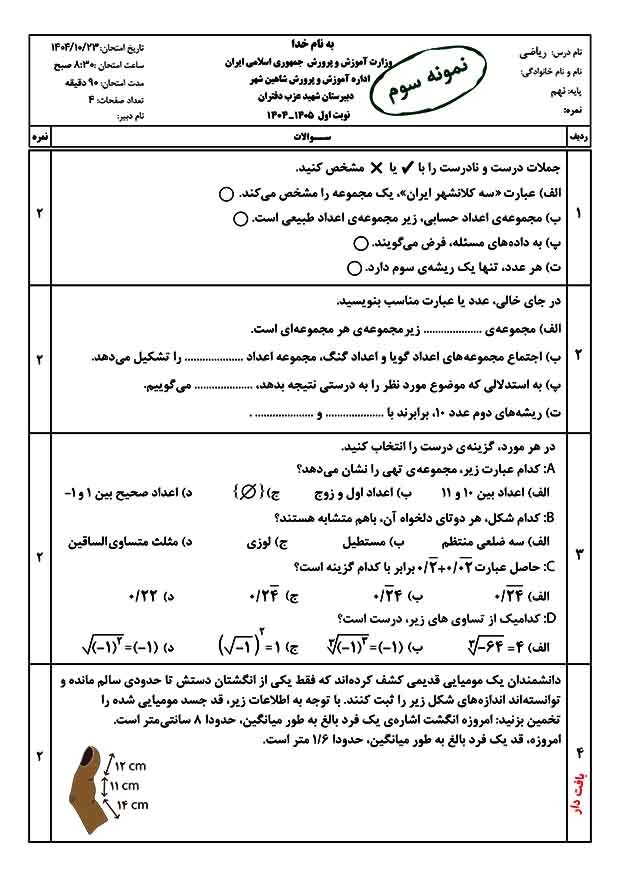 به نام خدا
نام درس: ریاضی
نام و نام خانوادگی:
پایه: نهم
نمره:
نمونه سوم
وزارت آموزش و پرورش جمهوری اسلامی ایران
اداره آموزش و پرورش شاهین شهر
دبیرستان شهید عزب دفتران
نوبت اول ۱۴۰۵_۱۴۰۴
تاریخ امتحان: ۱۴۰۴/۱۰/۲۳
ساعت امتحان: ۸:۳۰ صبح
مدت امتحان: ۹۰ دقیقه
تعداد صفحات: ۴
نام دبیر:
ردیف سوالات نمره
۱
جملات درست و نادرست را با ✔ یا ✘ مشخص کنید.
الف) عبارت «سه کلانشهر ایران»، یک مجموعه را مشخص می‌کند. ◯
ب) مجموعه‌ی اعداد حسابی، زیر مجموعه‌ی اعداد طبیعی است. ◯
پ) به داده‌های مسئله، فرض می‌گویند. ◯
ت) هر عدد، تنها یک ریشه‌ی سوم دارد. ◯
۲
۲
در جای خالی، عدد یا عبارت مناسب بنویسید.
الف) مجموعه‌ی .................... زیرمجموعه‌ی هر مجموعه‌ای است.
ب) اجتماع مجموعه‌های اعداد گویا و اعداد گنگ، مجموعه اعداد .................... را تشکیل می‌دهد.
پ) به استدلالی که موضوع مورد نظر را به درستی نتیجه بدهد، .................... می‌گوییم.
ت) ریشه‌های دوم عدد ۱۰، برابرند با .................... و .................... .
۲
۳
در هر مورد، گزینه‌ی درست را انتخاب کنید.
A: کدام عبارت زیر، مجموعه‌ی تهی را نشان می‌دهد؟
الف) اعداد بین ۱۰ و ۱۱ ب) اعداد اول و زوج ج) {∅} د) اعداد صحیح بین ۱ و ۱-
B: کدام شکل، هر دوتای دلخواه آن، باهم متشابه هستند؟
الف) سه ضلعی منتظم ب) مستطیل ج) لوزی د) مثلث متساوی‌الساقین
C: حاصل عبارت ۰/۲̅+۰/۰۲̅ برابر با کدام گزینه است؟
الف) ۰/۲۴̅ ب) ۰/۲۴̅ ج) ۰/۲۴̅ د) ۰/۲۲
D: کدامیک از تساوی های زیر، درست است؟
الف) ∛-۶۴ = ۴ ب) ∛(-۱)³=(-۱) ج) (√-۱)²=۱ د) √(-۱)²=(-۱)
۲
۴
بافت دار
دانشمندان یک مومیایی قدیمی کشف کرده‌اند که فقط یکی از انگشتان دستش تا حدودی سالم مانده و
توانسته‌اند اندازه‌های شکل زیر را ثبت کنند. با توجه به اطلاعات زیر، قد جسد مومیایی شده را
تخمین بزنید: امروزه انگشت اشاره‌ی یک فرد بالغ به طور میانگین، حدودا ۸ سانتی‌متر است.
امروزه، قد یک فرد بالغ به طور میانگین، حدودا ۱/۶ متر است.
۱۲ cm
۱۱ cm
۱۴ cm
۲